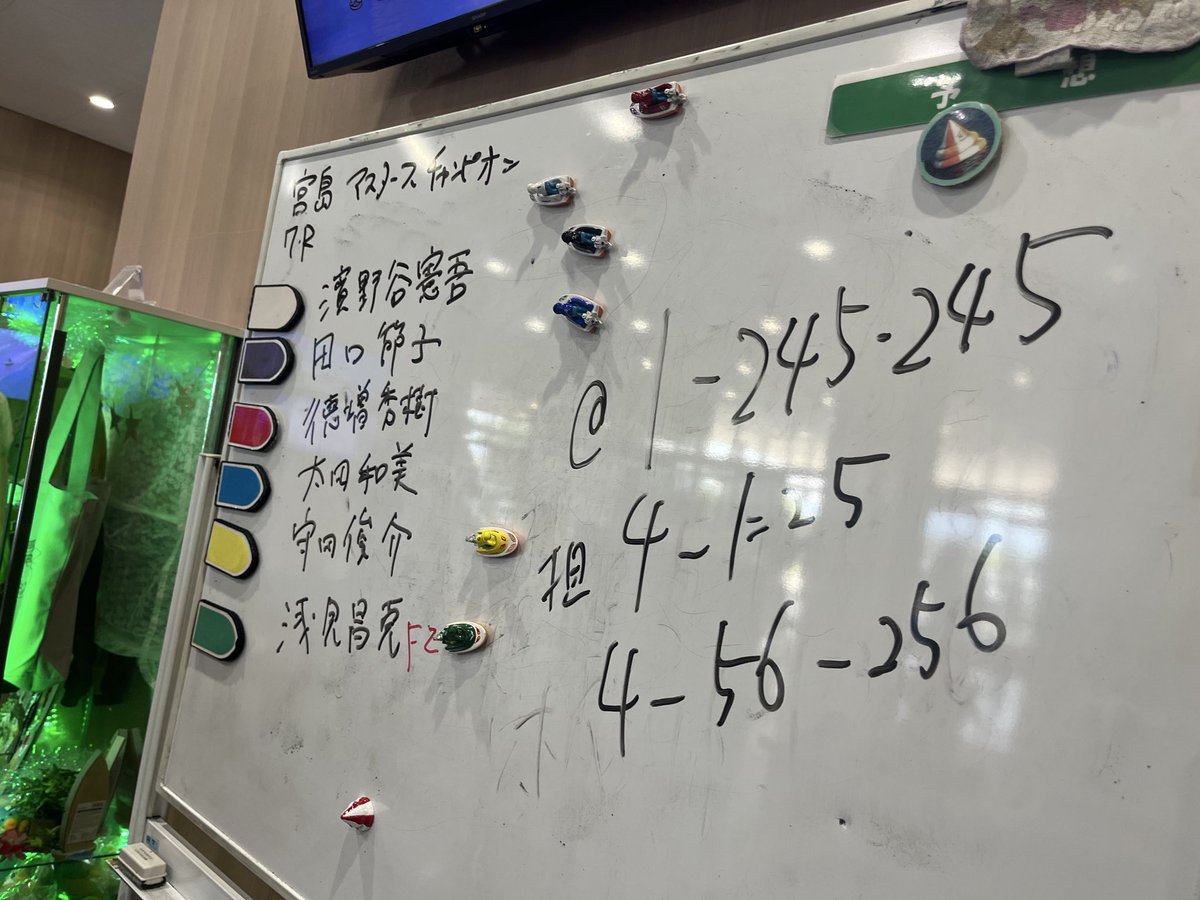 予想
宮島 マスターズチャンピオン
7R
濱野谷憲吾
田口節子
徳増秀樹
太田和美
守田俊介
浅見昌克 F2
@ 1-245-245
担 4-1=25
4-56-256